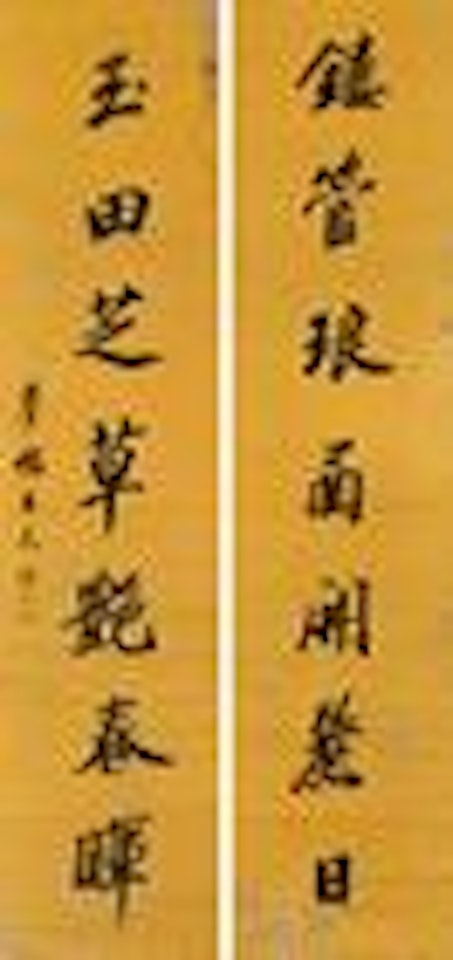 鏤管琅函開麗日
玉田芝草艷春暉